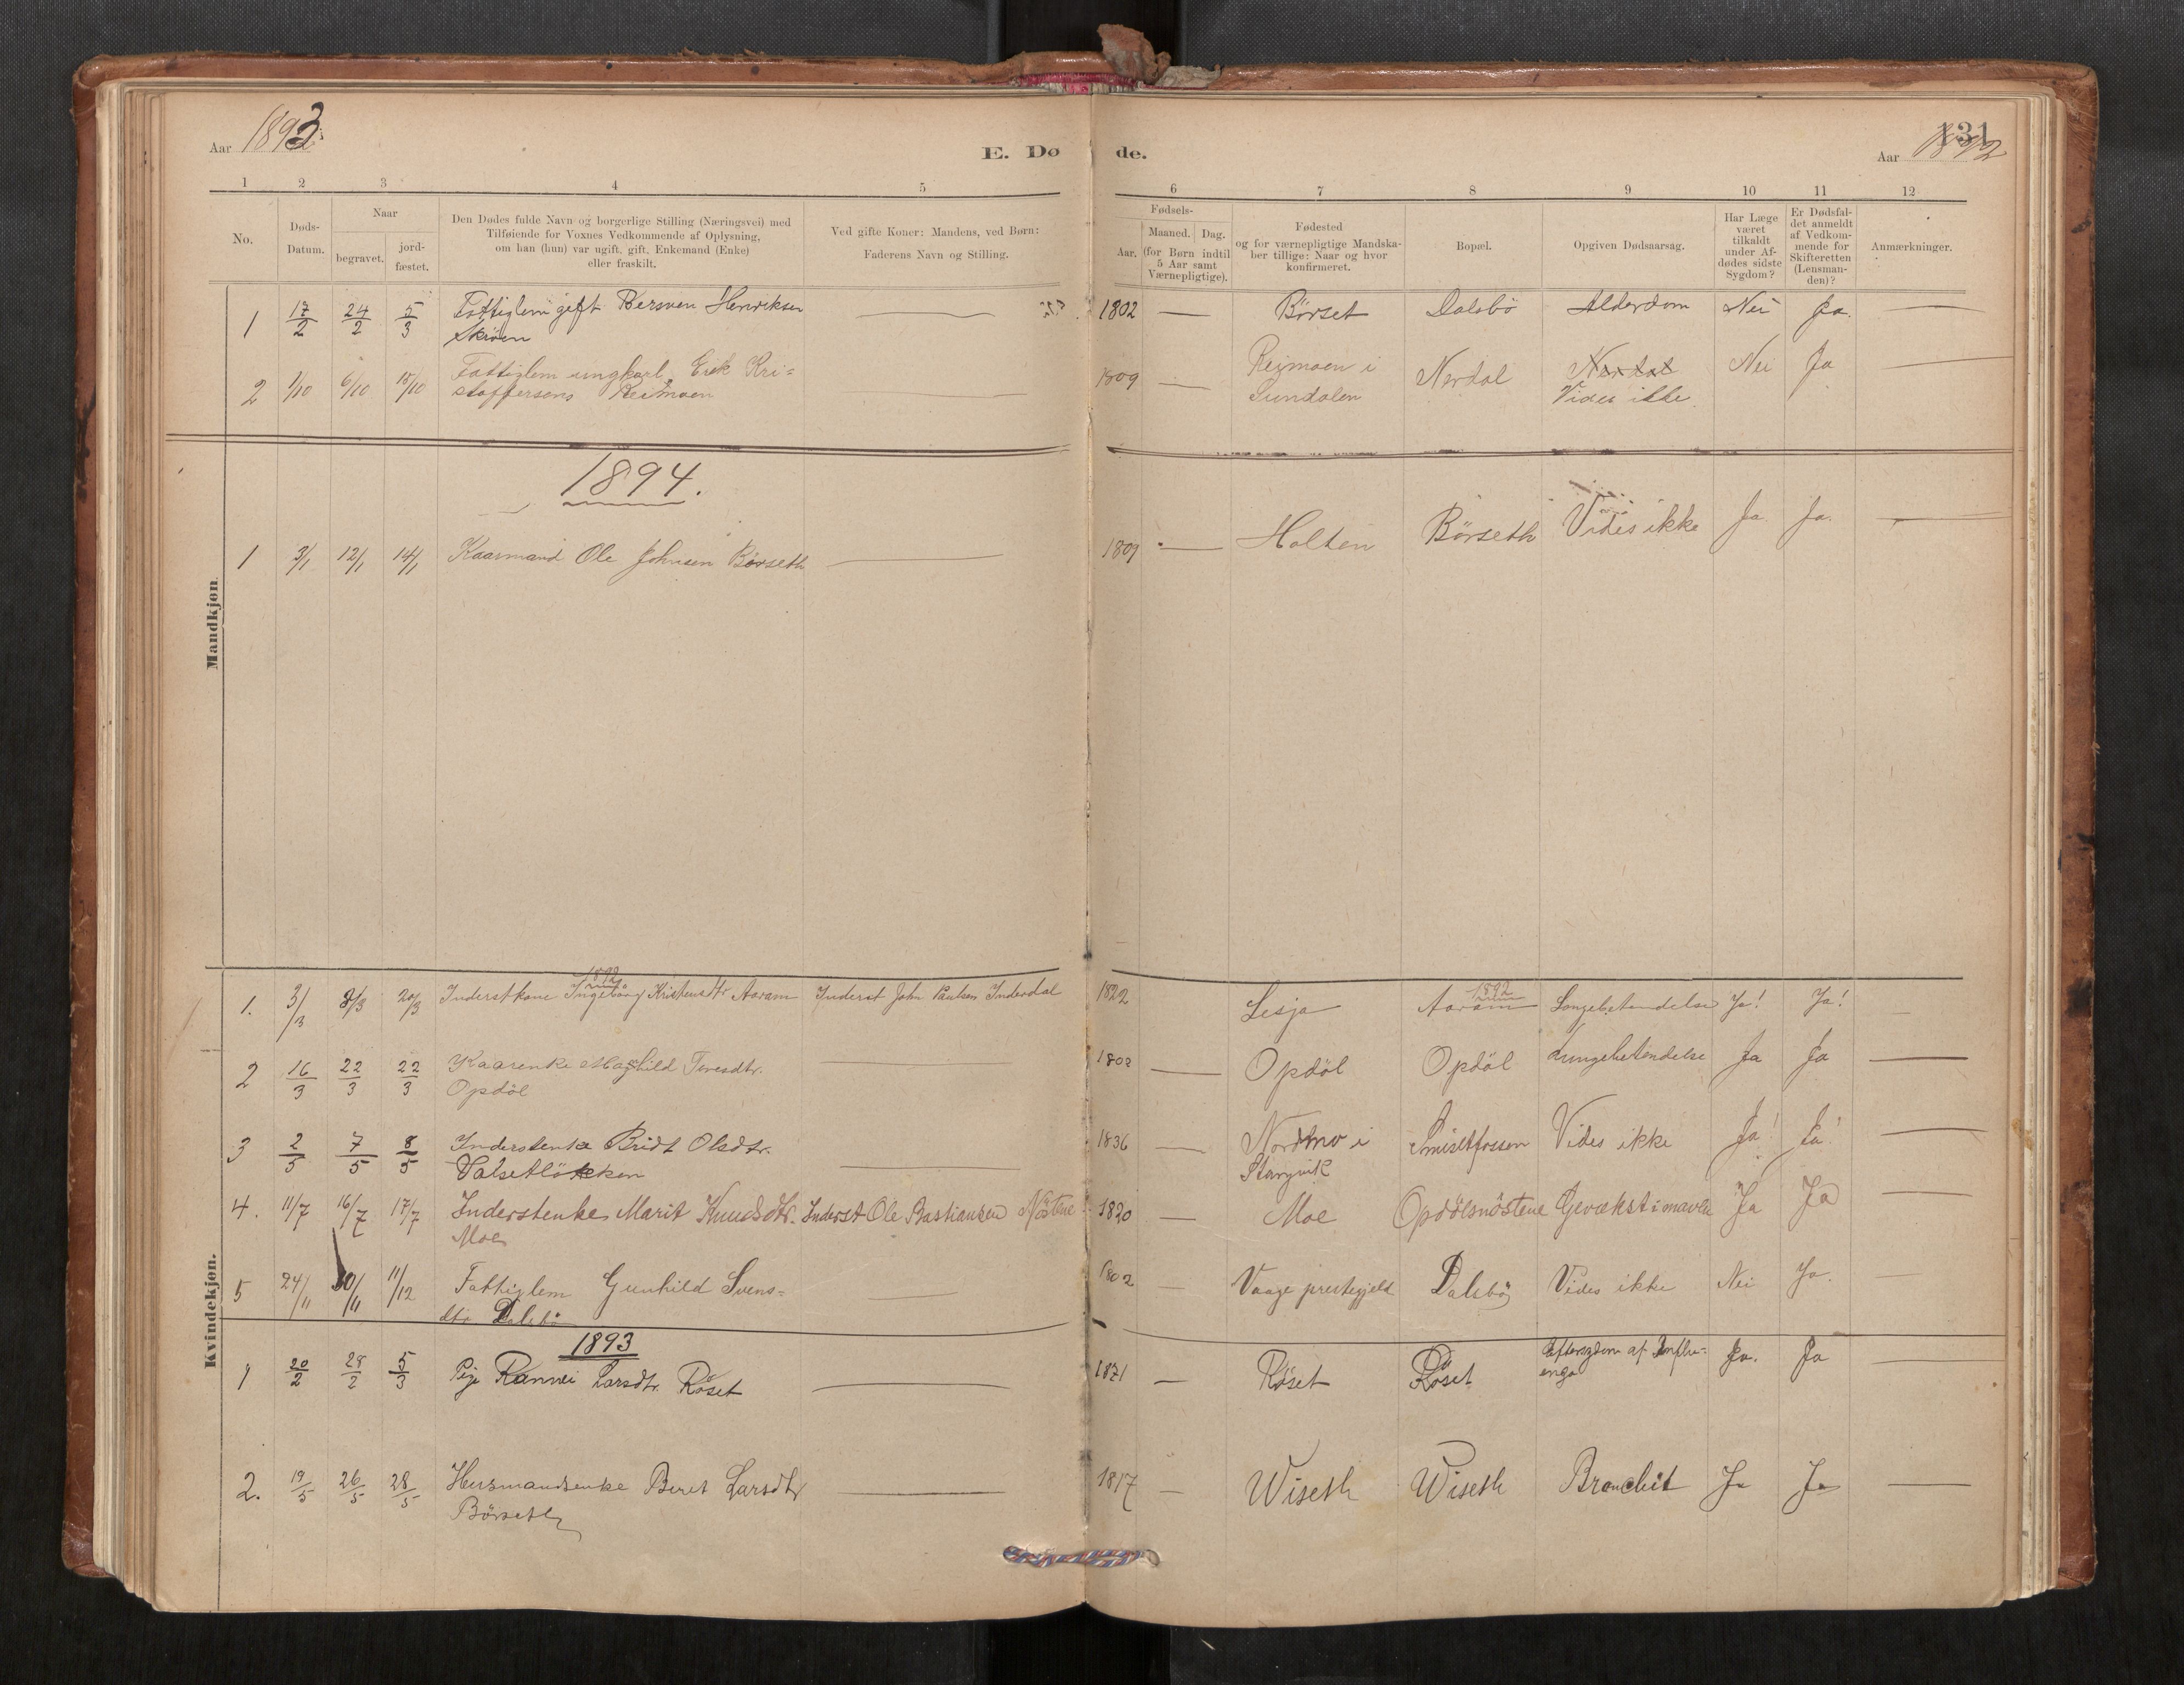 Aar 1893
E. Døde.
131
Aar 1892
1 2 3 4 5 6 7 8 9 10 11 12
No.
Døds-Datum.
Naar
begravet.
jord-fæstet.
Den Dødes fulde Navn og borgerlige Stilling (Næringsvei) med
Tilføiende for Voxnes Vedkommende af Oplysning,
om han (hun) var ugift, gift, Enkemand (Enke)
eller fraskilt.
Ved gifte Koner: Mandens, ved Børn:
Faderens Navn og Stilling.
Fødsels-
Aar.
Maaned. Dag.
(for Børn indtil
5 Aar samt
Værnepligtige).
Fødested
og for værnepligtige Mandska-
ber tillige: Naar og hvor
konfirmeret.
Bopæl.
Opgiven Dødsaarsag.
Har Læge
været
tilkaldt
under Af-
dødes sidste
Sygdom?
Er Dødsfal-
det anmeldt
af Vedkom-
mende for
Skifteretten
(Lensman-
den)?
Anmærkninger.
Mandkjøn.
1 17/2 24/2 5/3 Fattiglem gift Bersven Henriksen 1802 — Börset Dalsbö Alderdom Nei Ja. —
Skröen
2 1/10 6/10 15/10 Fattiglem ungkarl Erik Kri= 1809 — Reimoen i Nerdal Nerdal Nei Ja —
stoffersens Reimoen Sundalen Vides ikke
1894.
1 3/1 12/1 14/1 Kaarmand Ole Johnsen Børseth — 1809 — Holten Börseth Vides ikke Ja Ja. —
Kvindekjøn.
1892
1. 3/3 8/3 20/3 Inderstkone Ingeborg Kristensdtr Aaram Inderst John Paulsen Inderdal 1822 Lesja Aaram Longebetendelse Ja! Ja! —
1892
2 16/3 22/3 22/3 Kaarenke Maghild Toresdtr. — 1802 — Opdöl Opdöl Lungebetendelse Ja Ja —
Opdöl
3 2/5 7/5 8/5 Inderstenke Bridt Olsdtr. — 1836 — Nordmo i Smisetfossen Vides ikke Ja! Ja! —
Valsetlökken Stangvik
4. 11/7 16/7 17/7 Inderstenke Marit Knudsdtr. Inderst Ole Bastiansen Nöstene 1820 — Moe Opdölsnöstene Gevækst i maven Ja Ja —
Moe
5 24/11 30/11 11/12 Fattiglem Gunhild Svens= — 1802 — Vaage prestegjeld Dalsbö Vides ikke Nei Ja. —
dtr Dalsbö
1893
1 20/2 28/2 5/3 Pige Rannei Larsdtr. Röset — 1871 — Röset Röset Eftersygdom af Influ= Ja. Ja —
enza
2. 19/5 26/5 28/5 Husmandsenke Beret Larsdtr — 1817 — Wiseth Wiseth Bronchit Ja Ja —
Börseth